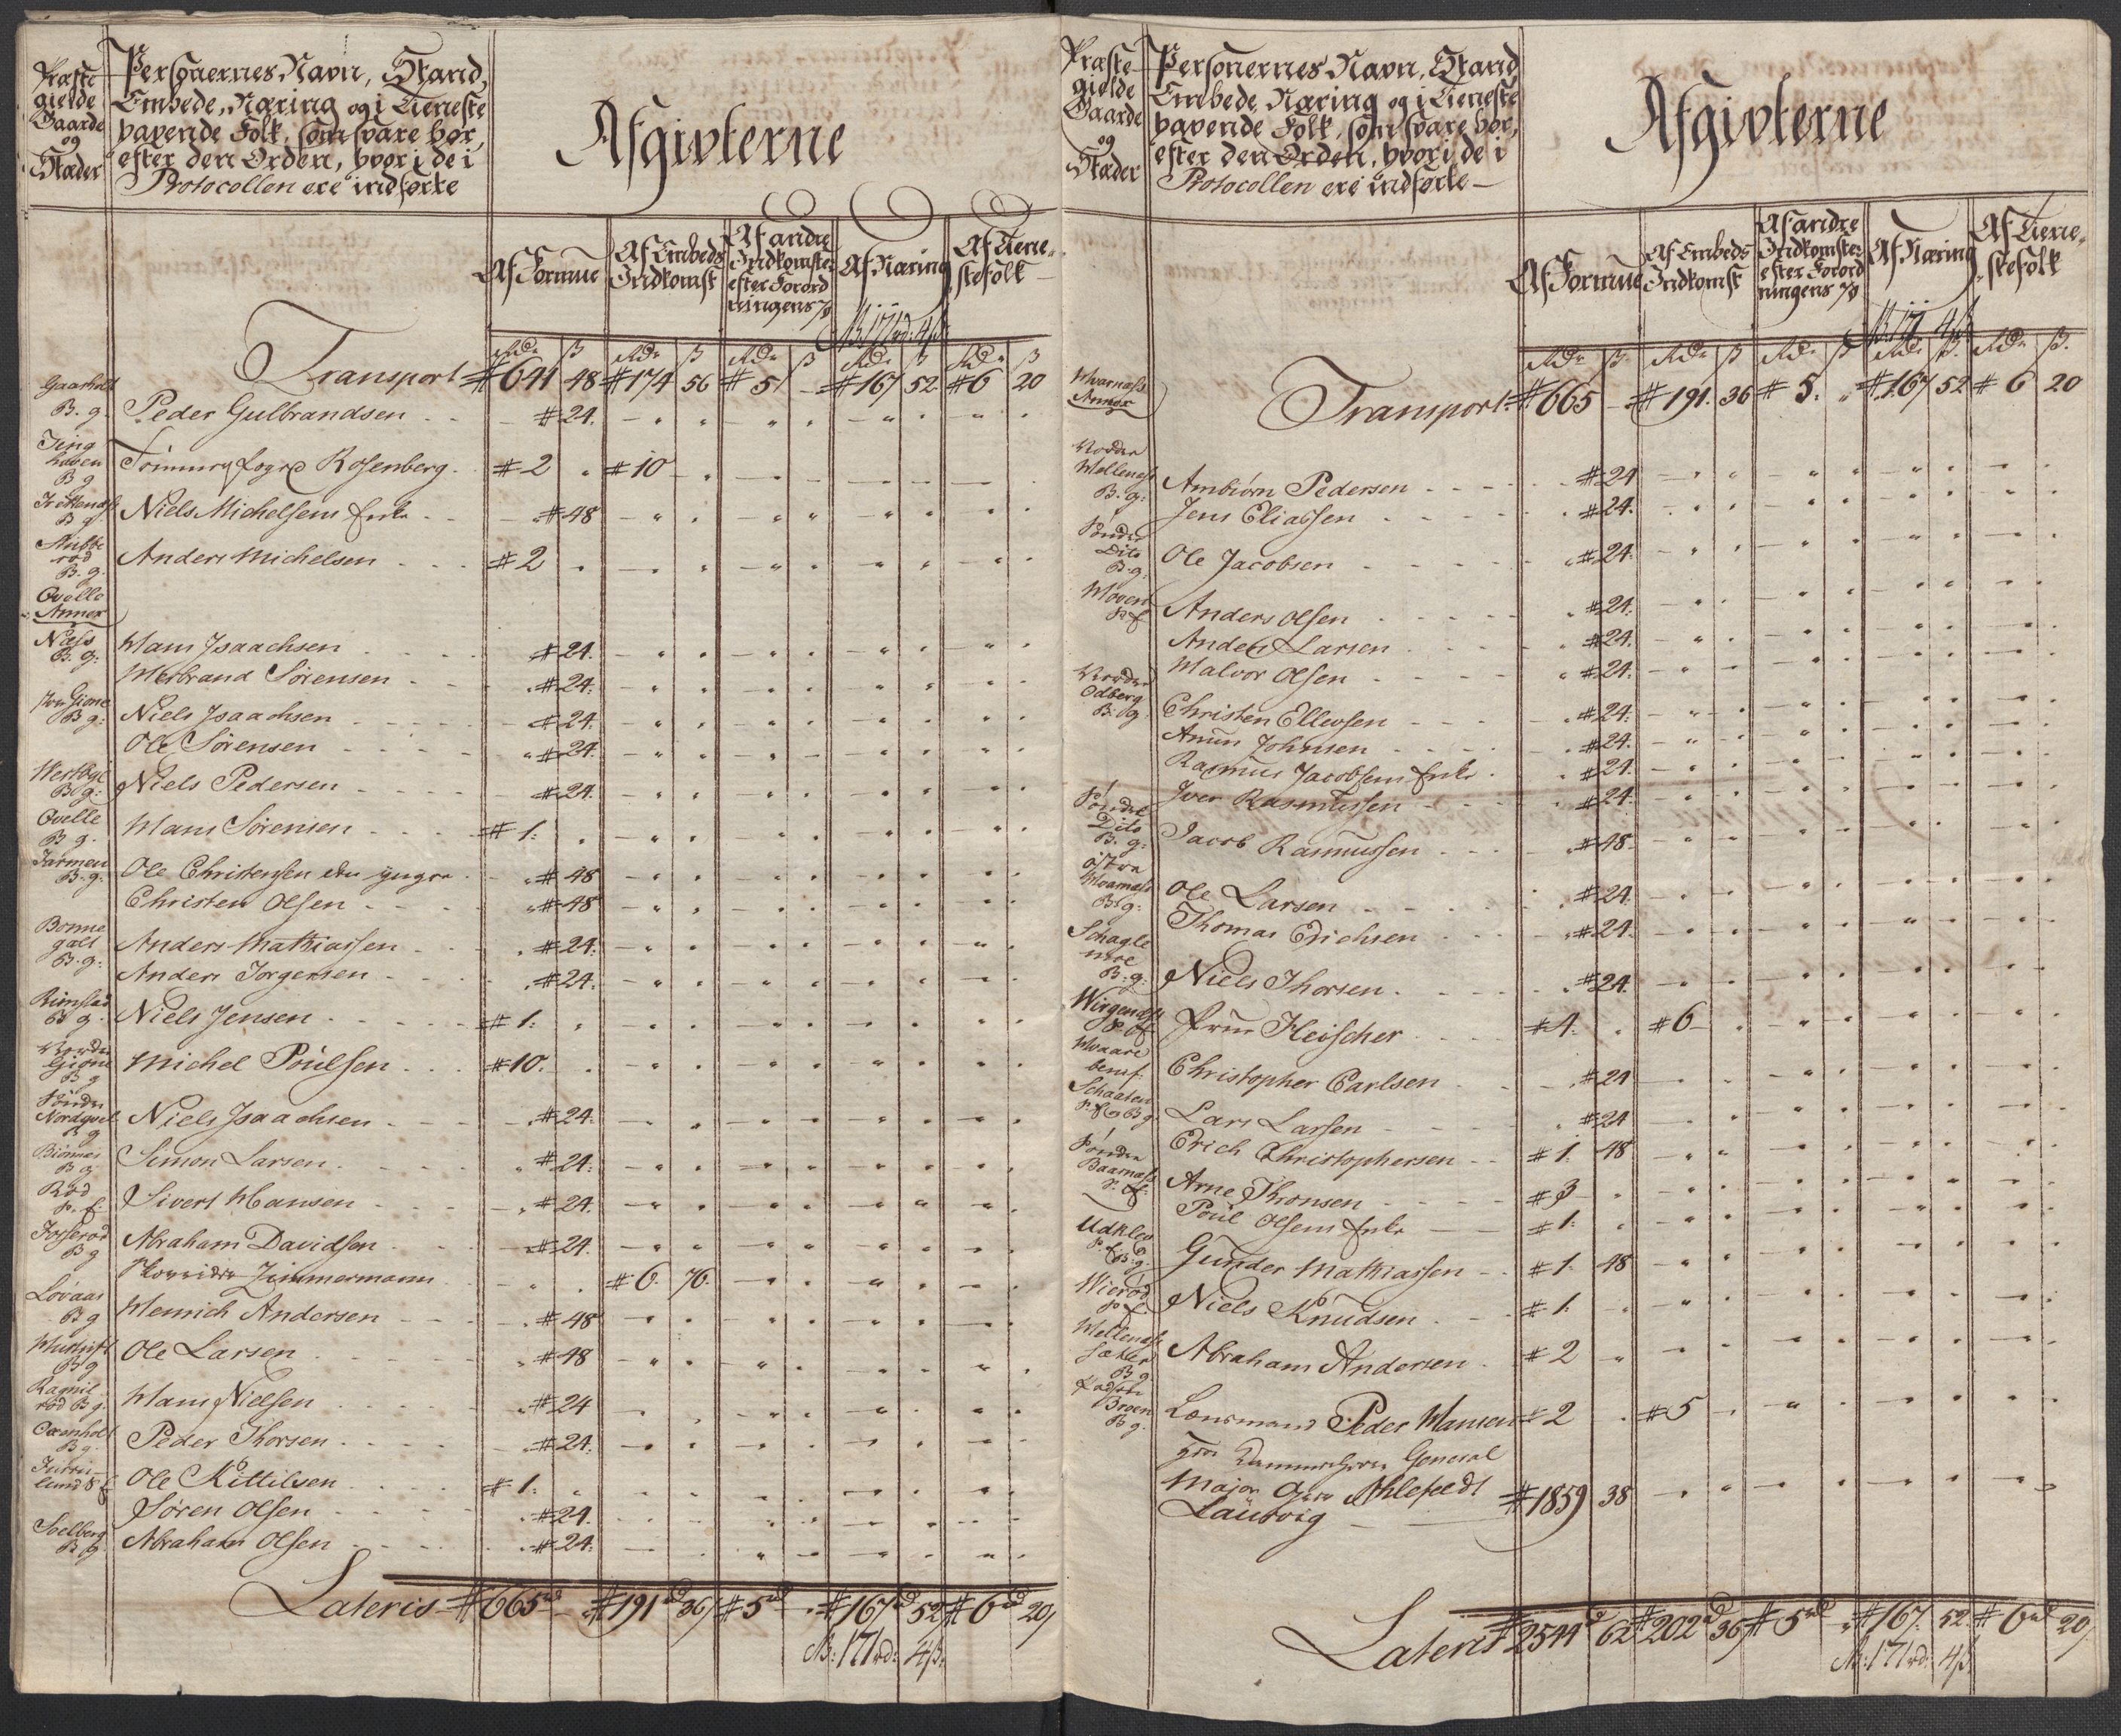 Præste
gielde
Gaarde
og
Stæder
Personernes Navn, Stand,
Embede, Næring og i Tieneste
havende Folk, som svare bør,
efter den Orden, hvori de i
Protocollen ere indførte
Afgivterne
Af Formue
Af Embeds
Indkomst
Af andre
Indkomster
efter Forord
ningens 7 §
Af Næring
Af Tiene-
stefolk
N: 171 rd: 4 ß
Rdr ß Rdr ß Rdr ß Rdr ß Rdr ß
Transport # 641 48 # 174 56 # 5 - # 167 52 # 6 20
Gaasholt
B. g. Peder Gulbrandsen # 24.
B. g Rosenberg # 2 # 10
B g Niels Michelsens Enke # 48
B. g. Anders Michelsen # 2
Qvelle
Annex
Næss
B. g: Hans Isaachsen # 24.
Herbrand Sørensen # 24.
B g: Niels Isaachsen # 24.
Ole Sørensen # 24
Vestbye
B g: Niels Pedersen # 24.
Qvelle
B g. Hans Sørensen # 1.
Farmen
B. g. Ole Christensen den yngre # 48
Christen Olsen # 48
Bonne
gaelt
B. g. Anders Mathiassen # 24.
Anders Jørgensen # 24.
Rimstad
B g. Niels Jensen # 1.
Nordre
Gione
B g Michel Poulsen # 10.
Søndre
Nordqvel
B g Niels Isaachsen # 24.
Biønnes
B g. Simon Larsen # 24.
Rød
P. f: Sivert Hansen # 24.
B g Abraham Davidsen # 24.
Zimmermann # 6. 76.
Løvaas
B g Henrich Andersen # 48
B g Ole Larsen # 48
Ragnil
rød B g. Hans Nielsen # 24
B g. Peder Thorsen # 24.
Ole Kittilsen # 1.
Søren Olsen # 24.
Soelberg
B g. Abraham Olsen # 24.
Lateris # 665 rd - # 191 rd 36 # 5 rd - # 167 rd 52 # 6 rd 20
N: 171 rd: 4 ß.
Præste
gielde
Gaarde
og
Stæder
Personernes Navn, Stand
Embede, Næring og i Tieneste
havende Folk, som svare bør,
efter den Orden, hvori de i
Protocollen ere indførte
Afgivterne
Af Formue
Af Embeds
Indkomst
Af andre
Indkomster
efter Forord
ningens 7 §
Af Næring
Af Tiene-
stefolk
N: 171 4 ß
Rdr ß Rdr ß Rdr ß Rdr ß. Rdr ß.
Hvarnæss
Annex
Transport # 665 - # 191. 36 # 5. # 167 52 # 6 20
Nordre
B. g: Ambiørn Pedersen # 24
Jens Eliassen # 24.
Søndre
Dito
B. g. Ole Jacobsen # 24.
P f Anders Olsen # 24.
Anders Larsen # 24.
Halvor Olsen # 24.
Nordre
Odberg
B. g Christen Ellevsen # 24.
Anun Johnsen # 24.
Rasmus Jacobsens Enke # 24.
Iver Rasmussen # 24.
Søndre
Dito
B. g: Jacob Rasmussen # 48.
Østre
Hvarnæss
B g: Ole Larsen # 24.
Thomas Erichsen # 24.
Schagle
moe
B. g. Niels Thorsen # 24.
P f Fleischer # 4. # 6
Christopher Carlsen # 24
Lars Larsen # 24
Erich Christophersen # 1. 48
Søndre
Arne Thronsen # 3
Poul Olsens Enke # 1.
Udklev
Gunder Mathiassen # 1. 48
P f. Niels Knudsen # 1.
sæter
B g. Abraham Andersen # 2
Broen
B g. Lensmand Peder Hansen # 2 # 5
Hrr Kammerherre General
Major Grev Ahlefeldt
Laurvig # 1859 38
Lateris # 2544 rd 62 # 202 rd 36 # 5 rd # 167. 52. # 6 rd 20
N: 171 rd: 4 ß.